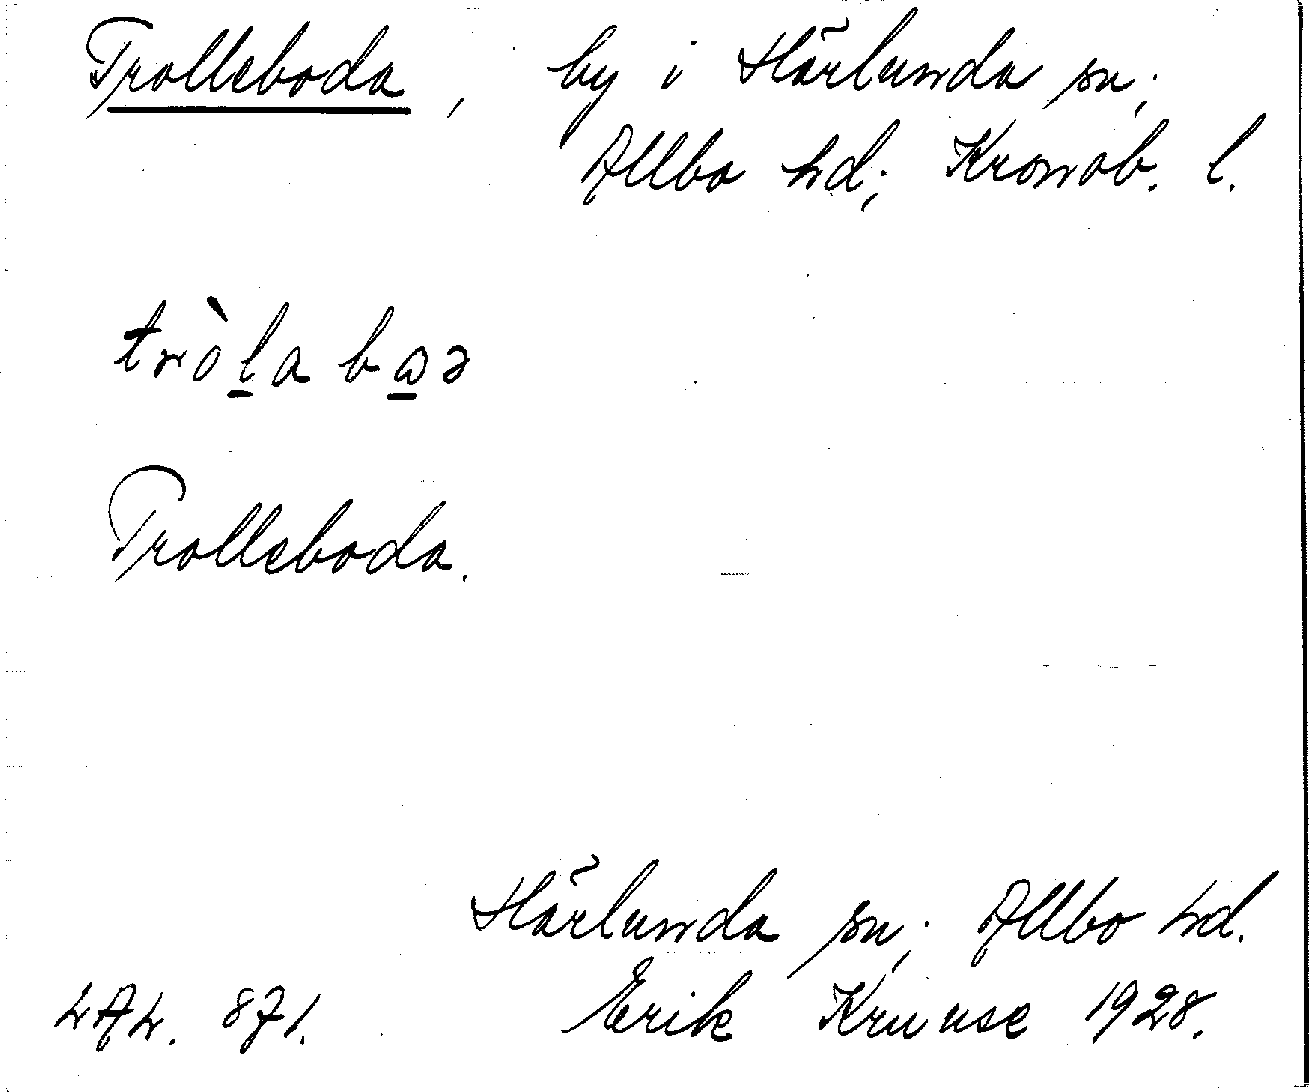 Trolleboda, by i Härlunda sn;
Allbo hd; Kronob. l.
tròl̲a ba̲ə
Trolleboda.
Härlunda sn; Allbo hd.
LAL. 871. Erik Kruuse 1928.